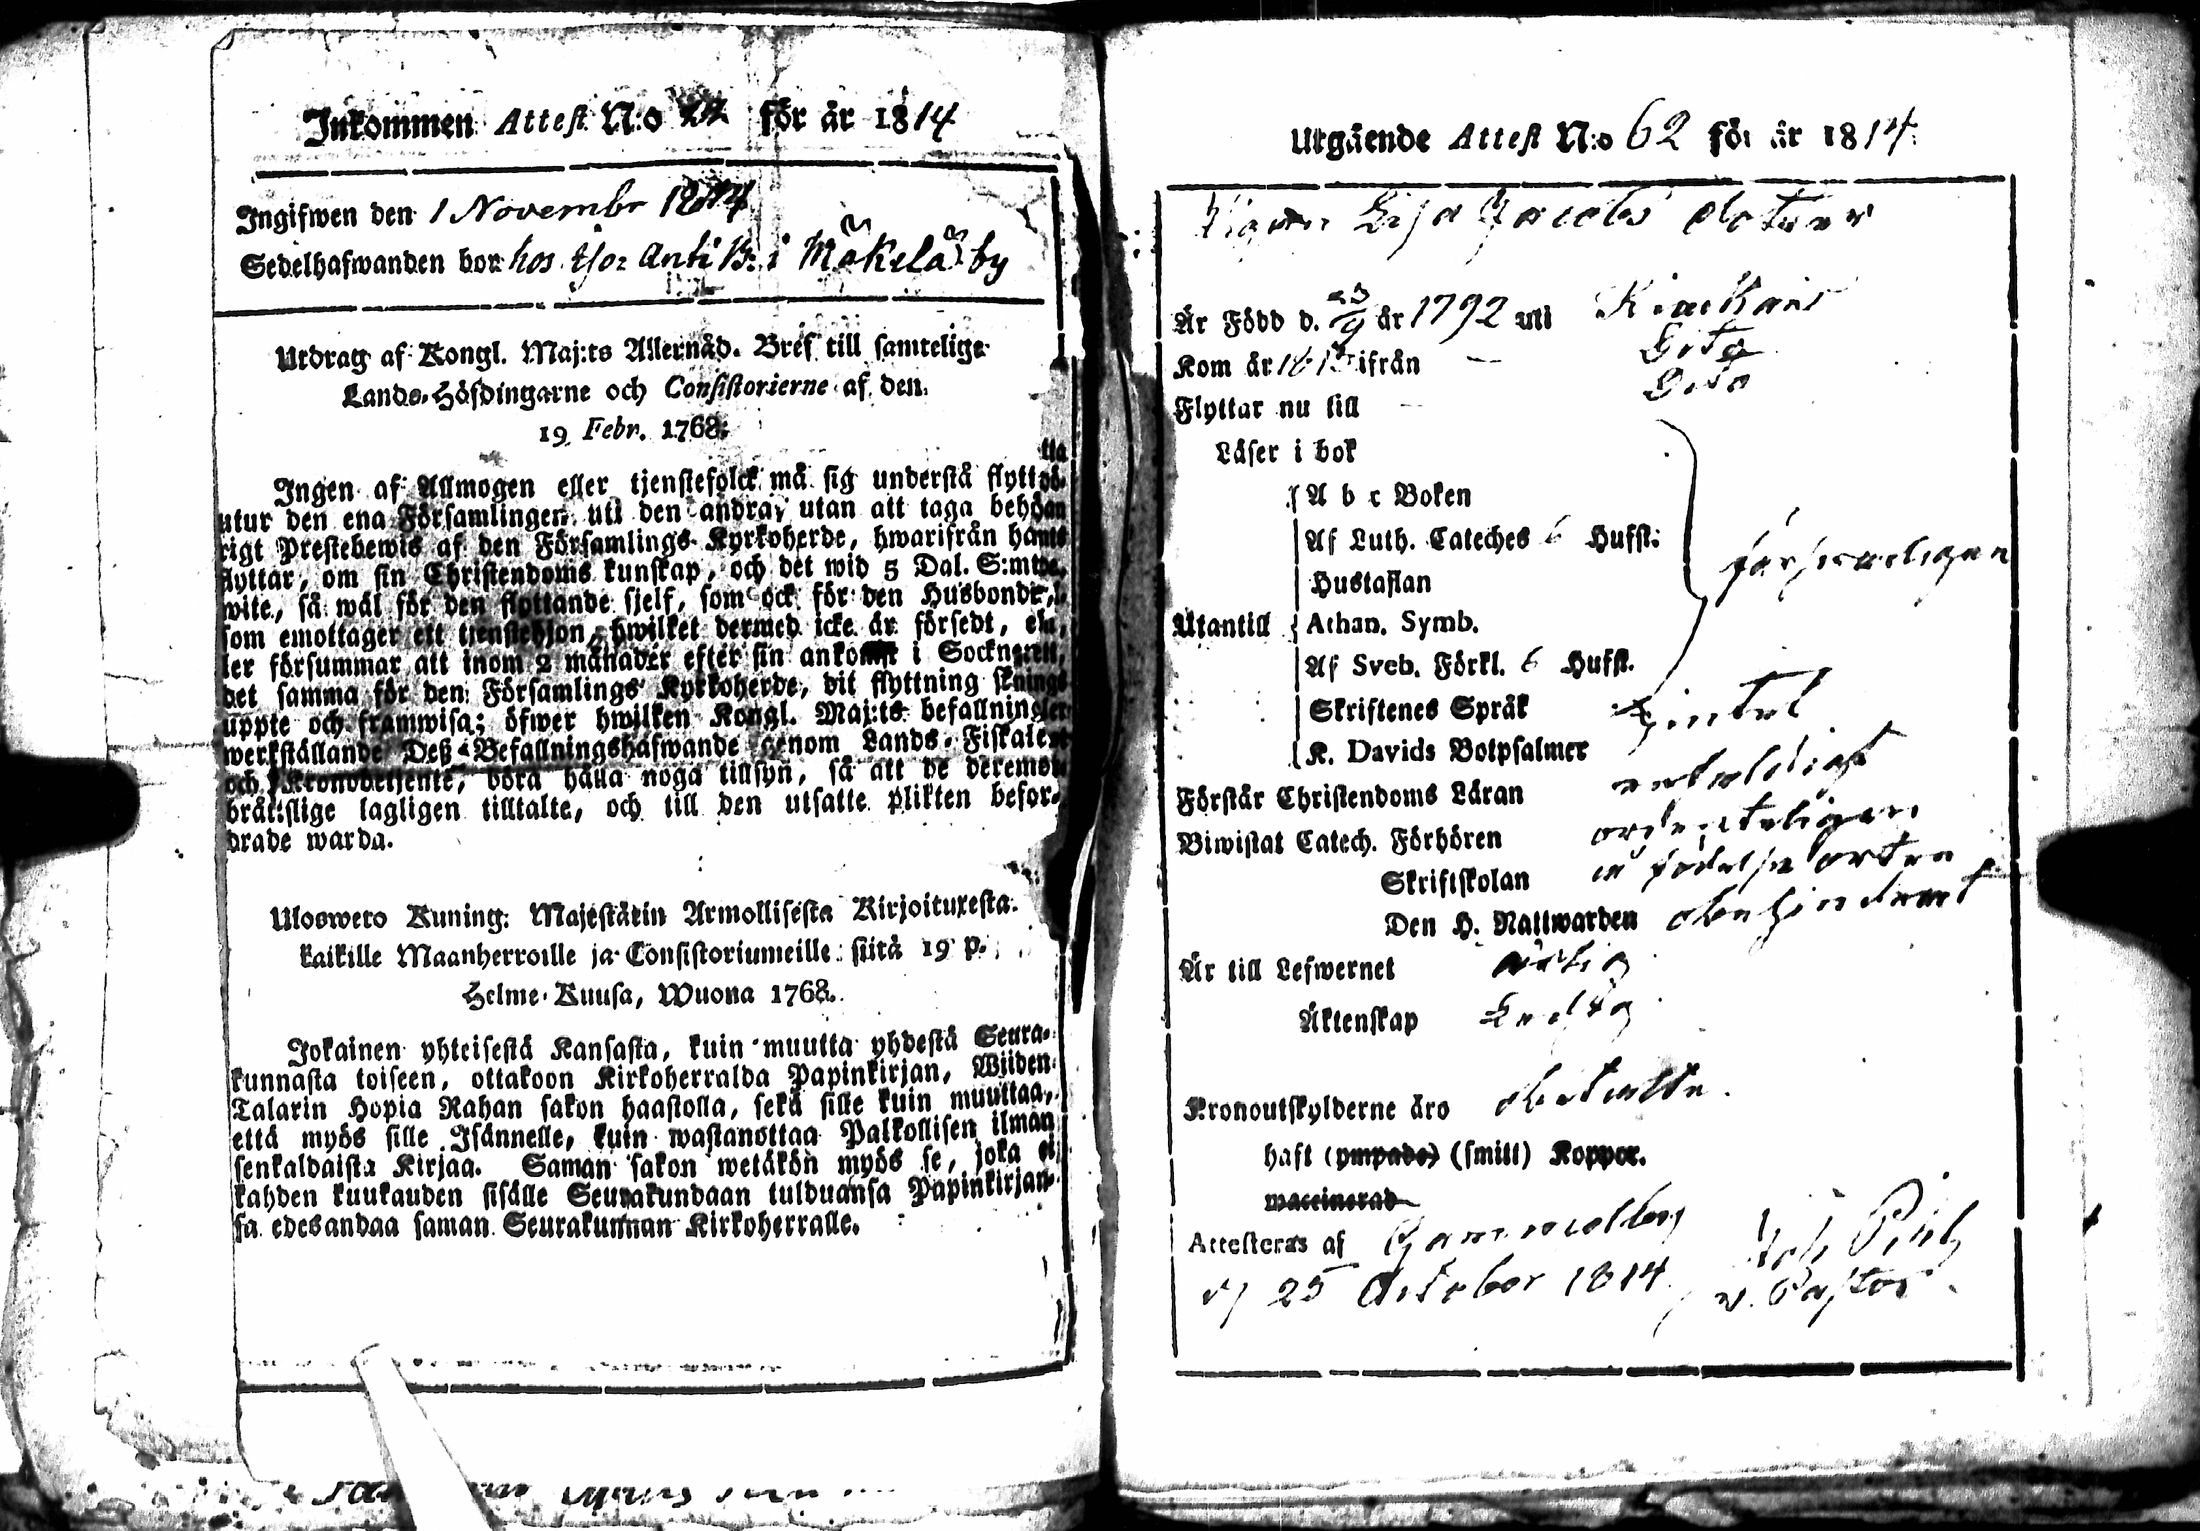 Inkommen Attest N:o 22 för år 1814
Ingifwen den 1 Novembr 1814
Sedelhafwanden bor hos tjor Antti i Mäkelä by
Utdrag af Kongl. Maj:ts Allernåd. Bref till samtelige
Lands-Höfdingarne och Consistorierne af den
19 Febr. 1768:
Ingen af Allmogen eller tjenstefolck må sig understå flytta
utur den ena Församlingen uti den andra, utan att taga behö-
rigt Prestebewis af den Församlings Kyrkoherde, hwarifrån han
flyttar, om sin Christendoms kunskap, och det wid 5 Dal. S:mts
wite, så wäl för den flyttande sjelf, som ock för den Husbonde,
som emottager ett tjenstehjon, hwilket dermed icke är försedt, el-
ler försummar att inom 2 månader efter sin ankomst i Socknen,
det samma för den Församlings Kyrkoherde, dit flyttning sker,
uppte och framwisa; öfwer hwilken Kongl. Maj:ts befallning
werkställande Deß Befallningshafwande genom Lands-Fiskaler
och Kronobetjente, böra hålla noga tillsyn, så att de deremot
bråttslige lagligen tilltalte, och till den utsatte plikten befor-
drade warda.
Uloswero Kuning: Majestätin Armollisesta Kirjoituxesta
kaikille Maanherroille ja Consistoriumeille siitä 19 p.
Helme-Kuusa, Wuona 1768.
Jokainen yhteisestä Kansasta, kuin muutta yhdestä Seura-
kunnasta toiseen, ottakoon Kirkoherralda Papinkirjan, Wiiden
Talarin Hopia Rahan sakon haastolla, sekä sille kuin muuttaa,
että myös sille Isännelle, kuin wastanottaa Palkollisen ilman
senkaldaista Kirjaa. Saman sakon wetäkön myös se, joka ei
kahden kuukauden sisälle Seurakundaan tulduansa Papinkirjan-
sa edesandaa saman Seurakunnan Kirkoherralle.
Utgående Attest N:o 62 för år 1814.
Pigan Lisa Jacobs dotter
Är Född d. 23/9 år 1792 uti
Kom år 1813 ifrån — Dito
Flyttar nu till — Dito
Läser i bok
A b c Boken
Af Luth. Cateches 6 Hufst.
Hustaflan
Utantill Athan. Symb.
Af Sveb. Förkl. 6 Hufst.
Skriftenes Språk
K. Davids Botpsalmer
Förstår Christendoms Läran enfaldigt
Biwistat Catech. Förhören ordenteligen
Skriftskolan i födelse orten
Den H. Nattwarden obehindradt
Är till Lefwernet ärlig
Äktenskap Ledig
Kronoutskylderne äro betalte.
haft (ympade) (smitt) Koppor.
waccinerad
Attesteras af Gammelby
d 25 October 1814 v. Pastor